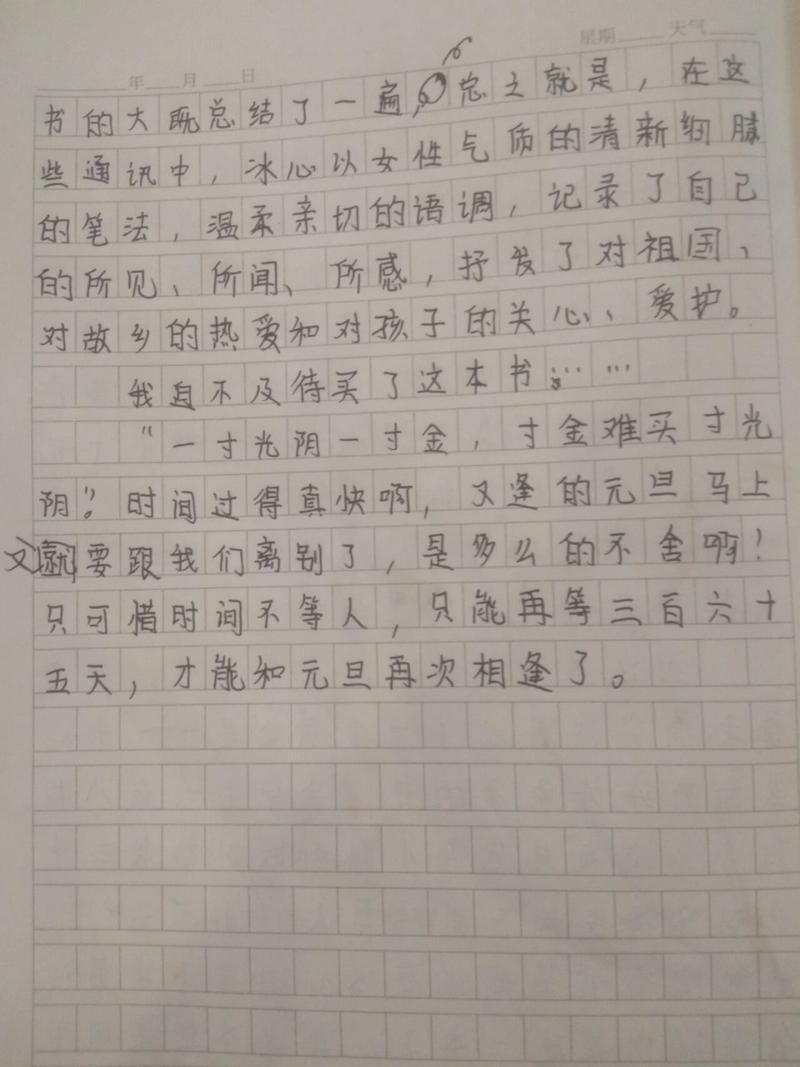 年 月 日 星期 天气
书的大既总结了一遍,总之就是，在这
些通讯中，冰心以女性气质的清新细腻
的笔法，温柔亲切的语调，记录了自己
的所见、所闻、所感，抒发了对祖国、
对故乡的热爱和对孩子的关心、爱护。
我自不及待买了这本书……
“一寸光阴一寸金，寸金难买寸光
阴”。时间过得真快啊，又逢的元旦马上
又要跟我们离别了，是多么的不舍啊！
只可惜时间不等人，只能再等三百六十
五天，才能和元旦再次相逢了。